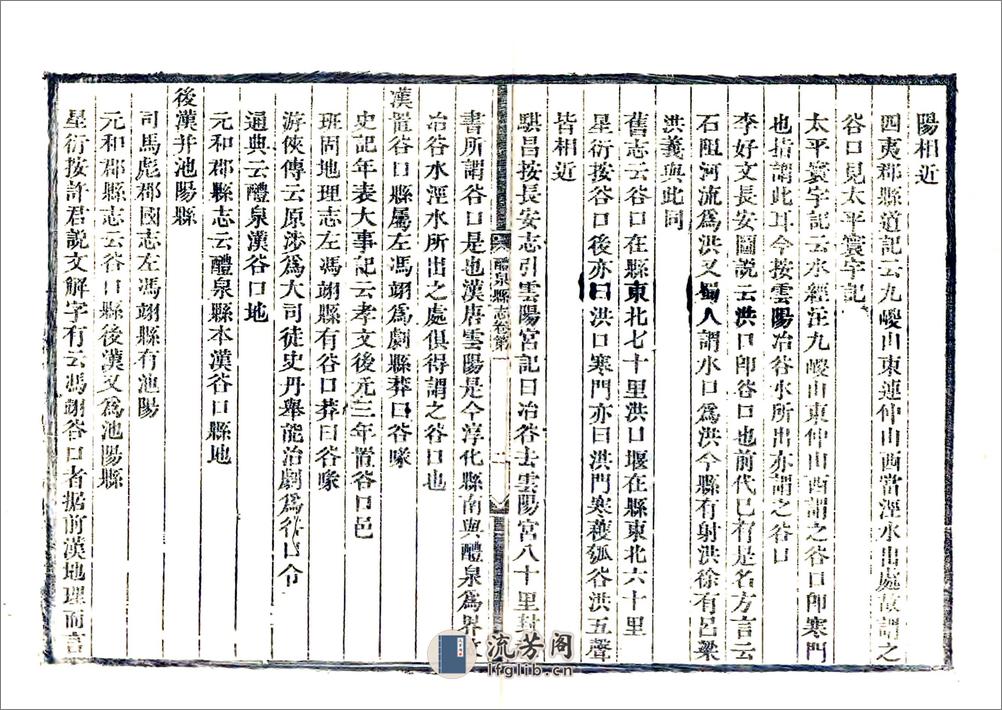 陽相近
四夷郡縣道記云九嵕山東連仲山西當涇水出處故謂之
谷口見太平寰宇記
太平寰宇記云水經注九嵕山東仲山西謂之谷口卽寒門
也指謂此耳今按雲陽冶谷水所出亦謂之谷口
李好文長安圖說云洪口卽谷口也前代已有是名方言云
石阻河流爲洪又蜀人謂水口爲洪今縣有射洪徐有呂梁
洪義與此同
舊志云谷口在縣東北七十里洪口堰在縣東北六十里
星衍按谷口後亦曰洪口寒門亦曰洪門寒穫瓠谷洪五聲
皆相近
騏昌按長安志引雲陽宮記曰冶谷去雲陽宮八十里封
醴泉縣志卷第一
二
書所謂谷口是也漢唐雲陽是今淳化縣南與醴泉爲界
冶谷水涇水所出之處俱得謂之谷口也
漢置谷口縣屬左馮翊爲劇縣莽曰谷喙
史記年表大事記云孝文後元三年置谷口邑
班固地理志左馮翊縣有谷口莽曰谷喙
游俠傳云原涉爲大司徒史丹舉能治劇爲谷口令
通典云醴泉漢谷口地
元和郡縣志云醴泉縣本漢谷口縣地
後漢并池陽縣
司馬彪郡國志左馮翊縣有池陽
元和郡縣志云谷口縣後漢又爲池陽縣
星衍按許君說文解字有云馮翊谷口者據前漢地理而言
流芳阁
lfglib.cn